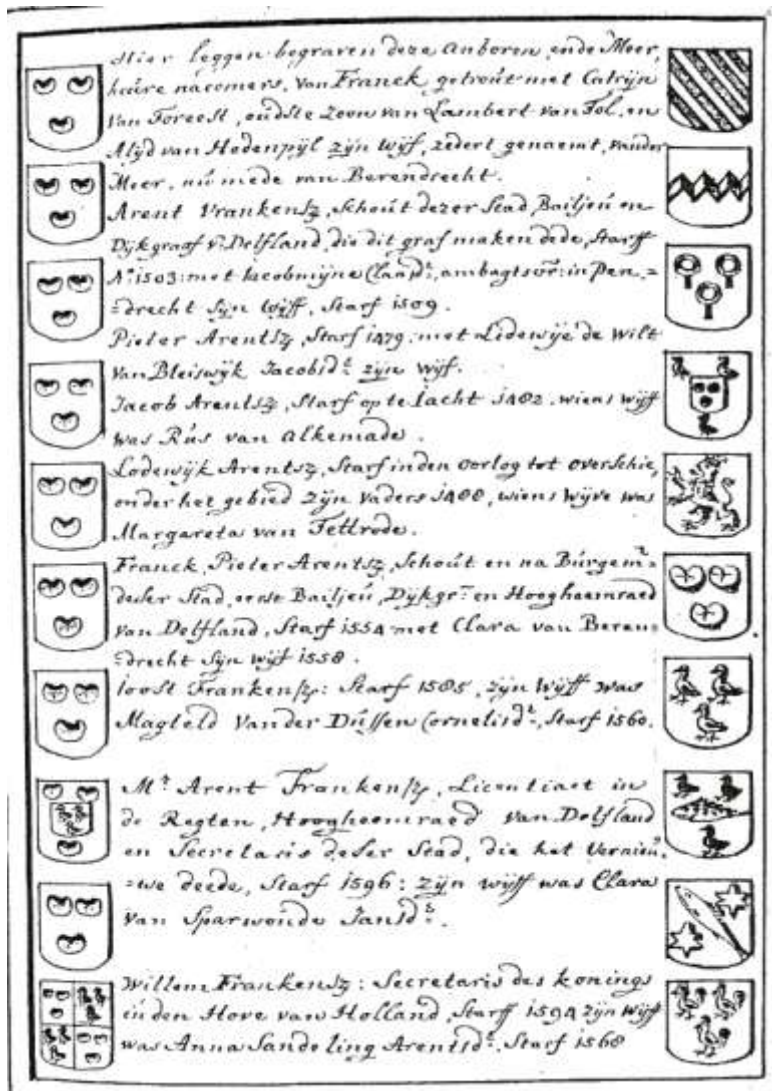 Hier leggen begraven deze Anboren, ende Meer,
haire nacomers, van Franck, getrout met Catrijn
van Foreest, oudste Zoon van Lambert van Tol, en
Alijd van Hodenpijl zijn wijf, zedert genaemt, vander
Meer, nu mede van Berendrecht.
Arent Vrankensz, Schout dezer Stad, Bailjeu en
Dijkgraaf v. Delfland, die dit graf maken dede, starff
Ao. 1503: met Jacobmijne Claasdr., ambagtsvr: in Pen=
=drecht sijn wijff, Starf 1509.
Pieter Arentsz, Starf 1479: met Lidewije de Wilt
van Bleiswijk Jacobsdr. zijn wijf.
Jacob Arentsz, Starf op te Jacht 1482. wiens wijff
was Rus van Alkemade.
Lodewijk Arentsz, Starf in den Oorlog tot Overschie,
onder het gebied zijn vaders 1488, wiens wijve was
Margareta van Tettrode.
Franck, Pieter Arentsz, Schout en na Burgemr.
deser Stad, eerst Bailjeu, Dijkgr. en Hoogheemraed
van Delfland, Starf 1554 met Clara van Beren=
=drecht sijn wijf 1558.
Joost Frankensz: Starf 1585, zijn Wijff was
Magteld Vander Dussen Cornelisdr., Starf 1560.
Mr. Arent Frankensz, Licentiaet in
de Regten, Hoogheemraed van Delfland
en Secretaris deser Stad, die het vernieu.
=we deede, Starf 1596: Zijn wijff was Clara
van Sparwoude Jansdr.
Willem Frankensz: Secretaris des konings
in den Hove van Holland, Starff 1594 zijn Wijff
was Anna Sandeling Arentsdr. Starf 1568